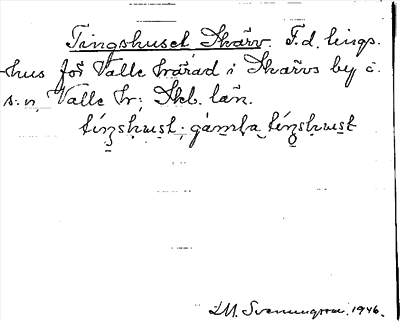 Tingshuset Skärv. F.d. tings-
hus för Valle härad i Skärvs by o.
s:n, Valle hr; Skb. län.
tíŋshust; gámla tíŋshust
M. Svenungsson. 1946.